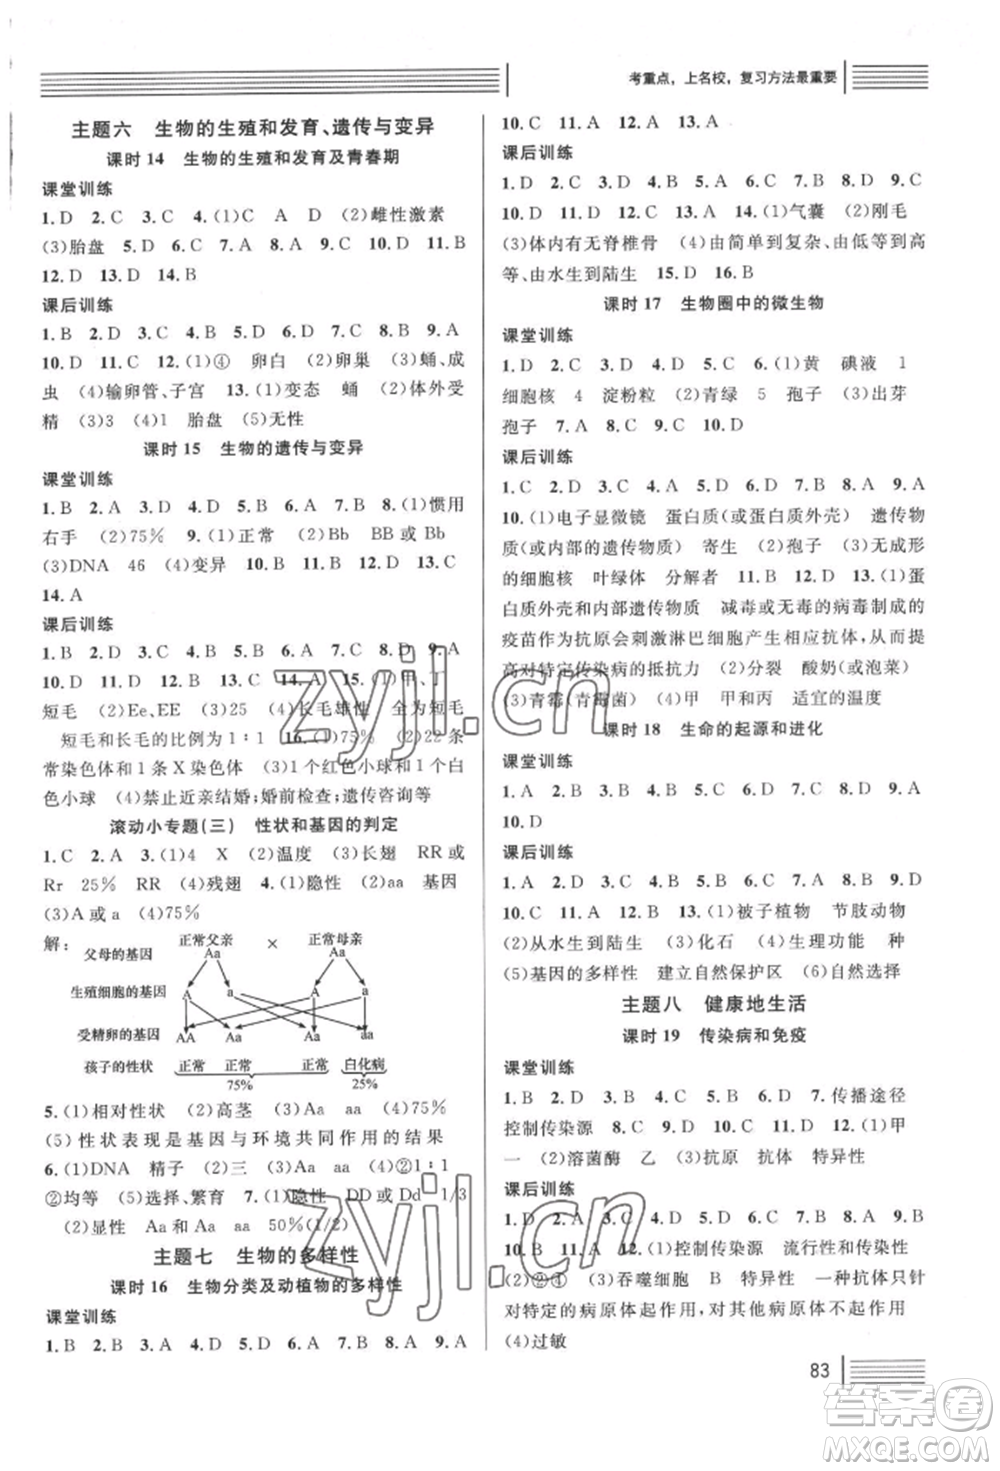 考重点，上名校，复习方法最重要
主题六　生物的生殖和发育、遗传与变异
课时 14　生物的生殖和发育及青春期
课堂训练
1. D　2. C　3. C　4. (1)C　A　D　(2)雌性激素
(3)胎盘　5. D　6. D　7. C　8. D　9. D　10. B　11. D
12. D　13. D　14. B
课后训练
1. B　2. D　3. D　4. D　5. B　6. B　7. C　8. B　9. A
10. D　11. C　12. (1)④　卵白　(2)卵巢　(3)蛹、成
虫　(4)输卵管、子宫　13. (1)变态　蛹　(2)体外受
精　(3)3　(4)1　胎盘　(5)无性
课时 15　生物的遗传与变异
课堂训练
1. B　2. A　3. D　4. D　5. B　6. A　7. B　8. (1)惯用
右手　(2)75%　9. (1)正常　(2)Bb　BB或Bb
(3)DNA　46　(4)变异　10. B　11. B　12. C　13. C
14. A
课后训练
1. B　2. B　3. A　4. B　5. C　6. B　7. D　8. D　9. A
10. D　11. D　12. C　13. C　14. A　15. (1)甲、丁
短毛　(2)Ee、EE　(3)25　(4)长毛雄性　全为短毛
短毛和长毛的比例为 1∶1　16. (2)22 条
常染色体和 1 条 X 染色体　(3)1个红色小球和1个白
色小球　(4)禁止近亲结婚；婚前检查；遗传咨询等
滚动小专题(三)　性状和基因的判定
1. C　2. A　3. (1)4　X　(2)温度　(3)长翅　RR 或
Rr　25%　RR　(4)残翅　4. (1)隐性　(2)aa　基因
(3)A 或 a　(4)75%
解：
正常父亲　×　正常母亲
父母的基因　Aa　Aa
生殖细胞的基因　A　a　A　a
受精卵的基因　AA　Aa　Aa　aa
孩子的性状　正常　正常　正常　白化病
75%　25%
5. (1)相对性状　(2)高茎　(3)Aa　aa　(4)75%
(5)性状表现是基因与环境共同作用的结果
6. (1)DNA　精子　(2)三　(3)Aa　aa　(4)②1∶1
②均等　(5)选择、繁育　7. (1)隐性　DD 或 Dd　1/3
(2)显性　Aa 和 Aa　50%(1/2)
主题七　生物的多样性
课时 16　生物分类及动植物的多样性
课堂训练
1. B　2. B　3. A　4. D　5. A　6. B　7. A　8. A　9. A
10. C　11. A　12. A　13. A
课后训练
1. D　2. C　3. C　4. B　5. D　6. A　7. B　8. D　9. C
10. D　11. D　12. A　13. D　14. (1)气囊　(2)刚毛
(3)体内有无脊椎骨　(4)由简单到复杂、由低等到高
等、由水生到陆生　15. D　16. B
课时 17　生物圈中的微生物
课堂训练
1. D　2. C　3. D　4. D　5. A　6. (1)黄　碘液　1
细胞核　4　淀粉粒　(2)青绿　5　孢子　(3)出芽
孢子　7. A　8. C　9. C　10. D
课后训练
1. C　2. B　3. D　4. D　5. C　6. B　7. A　8. A　9. A
10. (1)电子显微镜　蛋白质(或蛋白质外壳)　遗传物
质(或内部的遗传物质)　寄生　(2)孢子　(3)无成形
的细胞核　叶绿体　分解者　11. B　12. D　13. (1)蛋
白质外壳和内部遗传物质　减毒或无毒的病毒制成的
疫苗作为抗原会刺激淋巴细胞产生相应抗体，从而提
高对特定传染病的抵抗力　(2)分裂　酸奶(或泡菜)
(3)青霉(青霉菌)　(4)甲　甲和丙　适宜的温度
课时 18　生命的起源和进化
课堂训练
1. A　2. C　3. D　4. A　5. A　6. D　7. B　8. D　9. D
10. D
课后训练
1. A　2. D　3. C　4. B　5. C　6. A　7. C　8. A　9. D
10. C　11. D　12. A　13. (1)被子植物　节肢动物
(2)从水生到陆生　(3)化石　(4)生理功能　种
(5)基因的多样性　建立自然保护区　(6)自然选择
主题八　健康地生活
课时 19　传染病和免疫
课堂训练
1. B　2. D　3. C　4. D　5. B　6. D　7. (1)传播途径
控制传染源　8. C　9. D　10. C　11. A　12. (1)甲
一　(2)溶菌酶　乙　(3)抗原　抗体　特异性
课后训练
1. C　2. D　3. C　4. D　5. B　6. C　7. D　8. A　9. C
10. B　11. C　12. (1)控制传染源　流行性和传染性
(2)②②④　(3)吞噬细胞　B　特异性　一种抗体只针
对特定的病原体起作用，对其他病原体不起作用
(4)过敏
83
zyjl.cn
zyjl.cn
答案卷
MXQE.COM